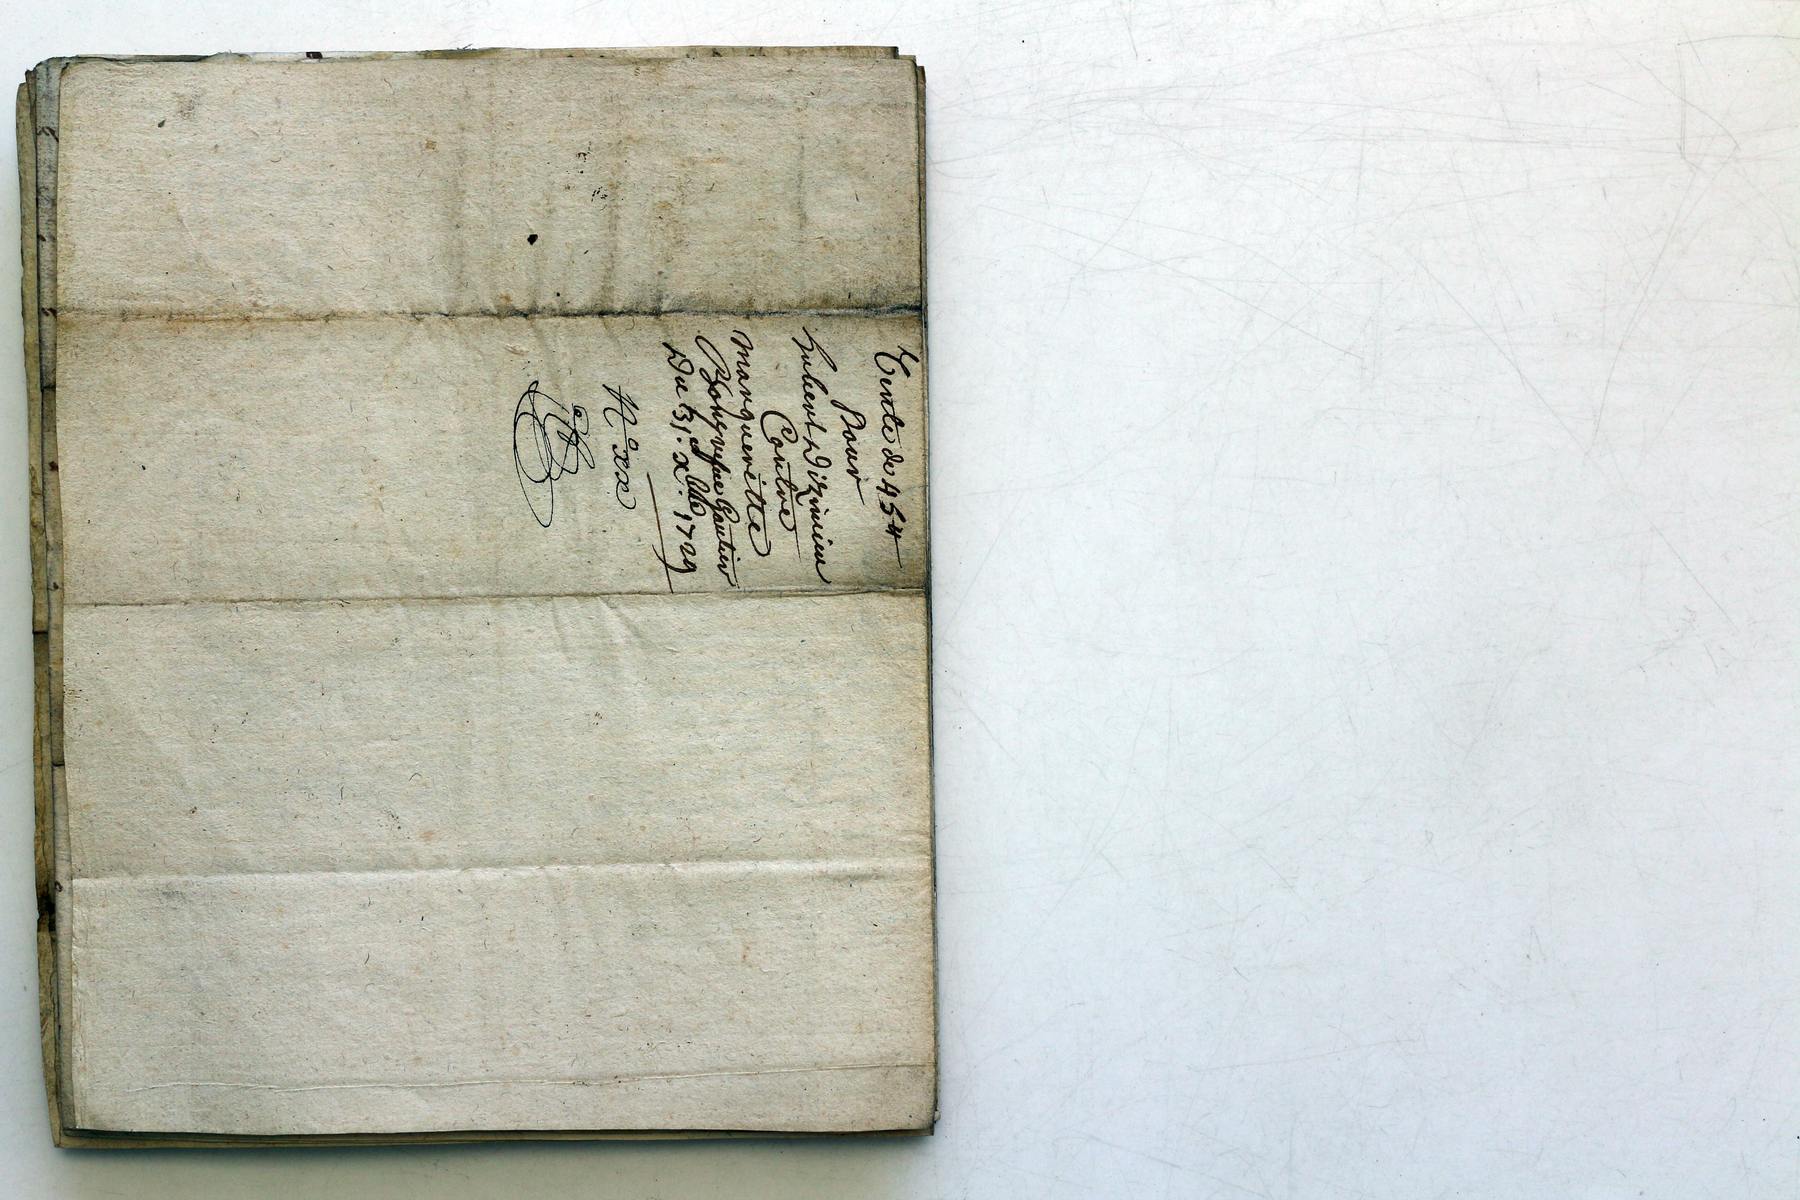 Vente de 454
Pour
hubert Dizinieu
Contre
Margueritte
Gautier
Du 31. X.bre 1729
N.o xx